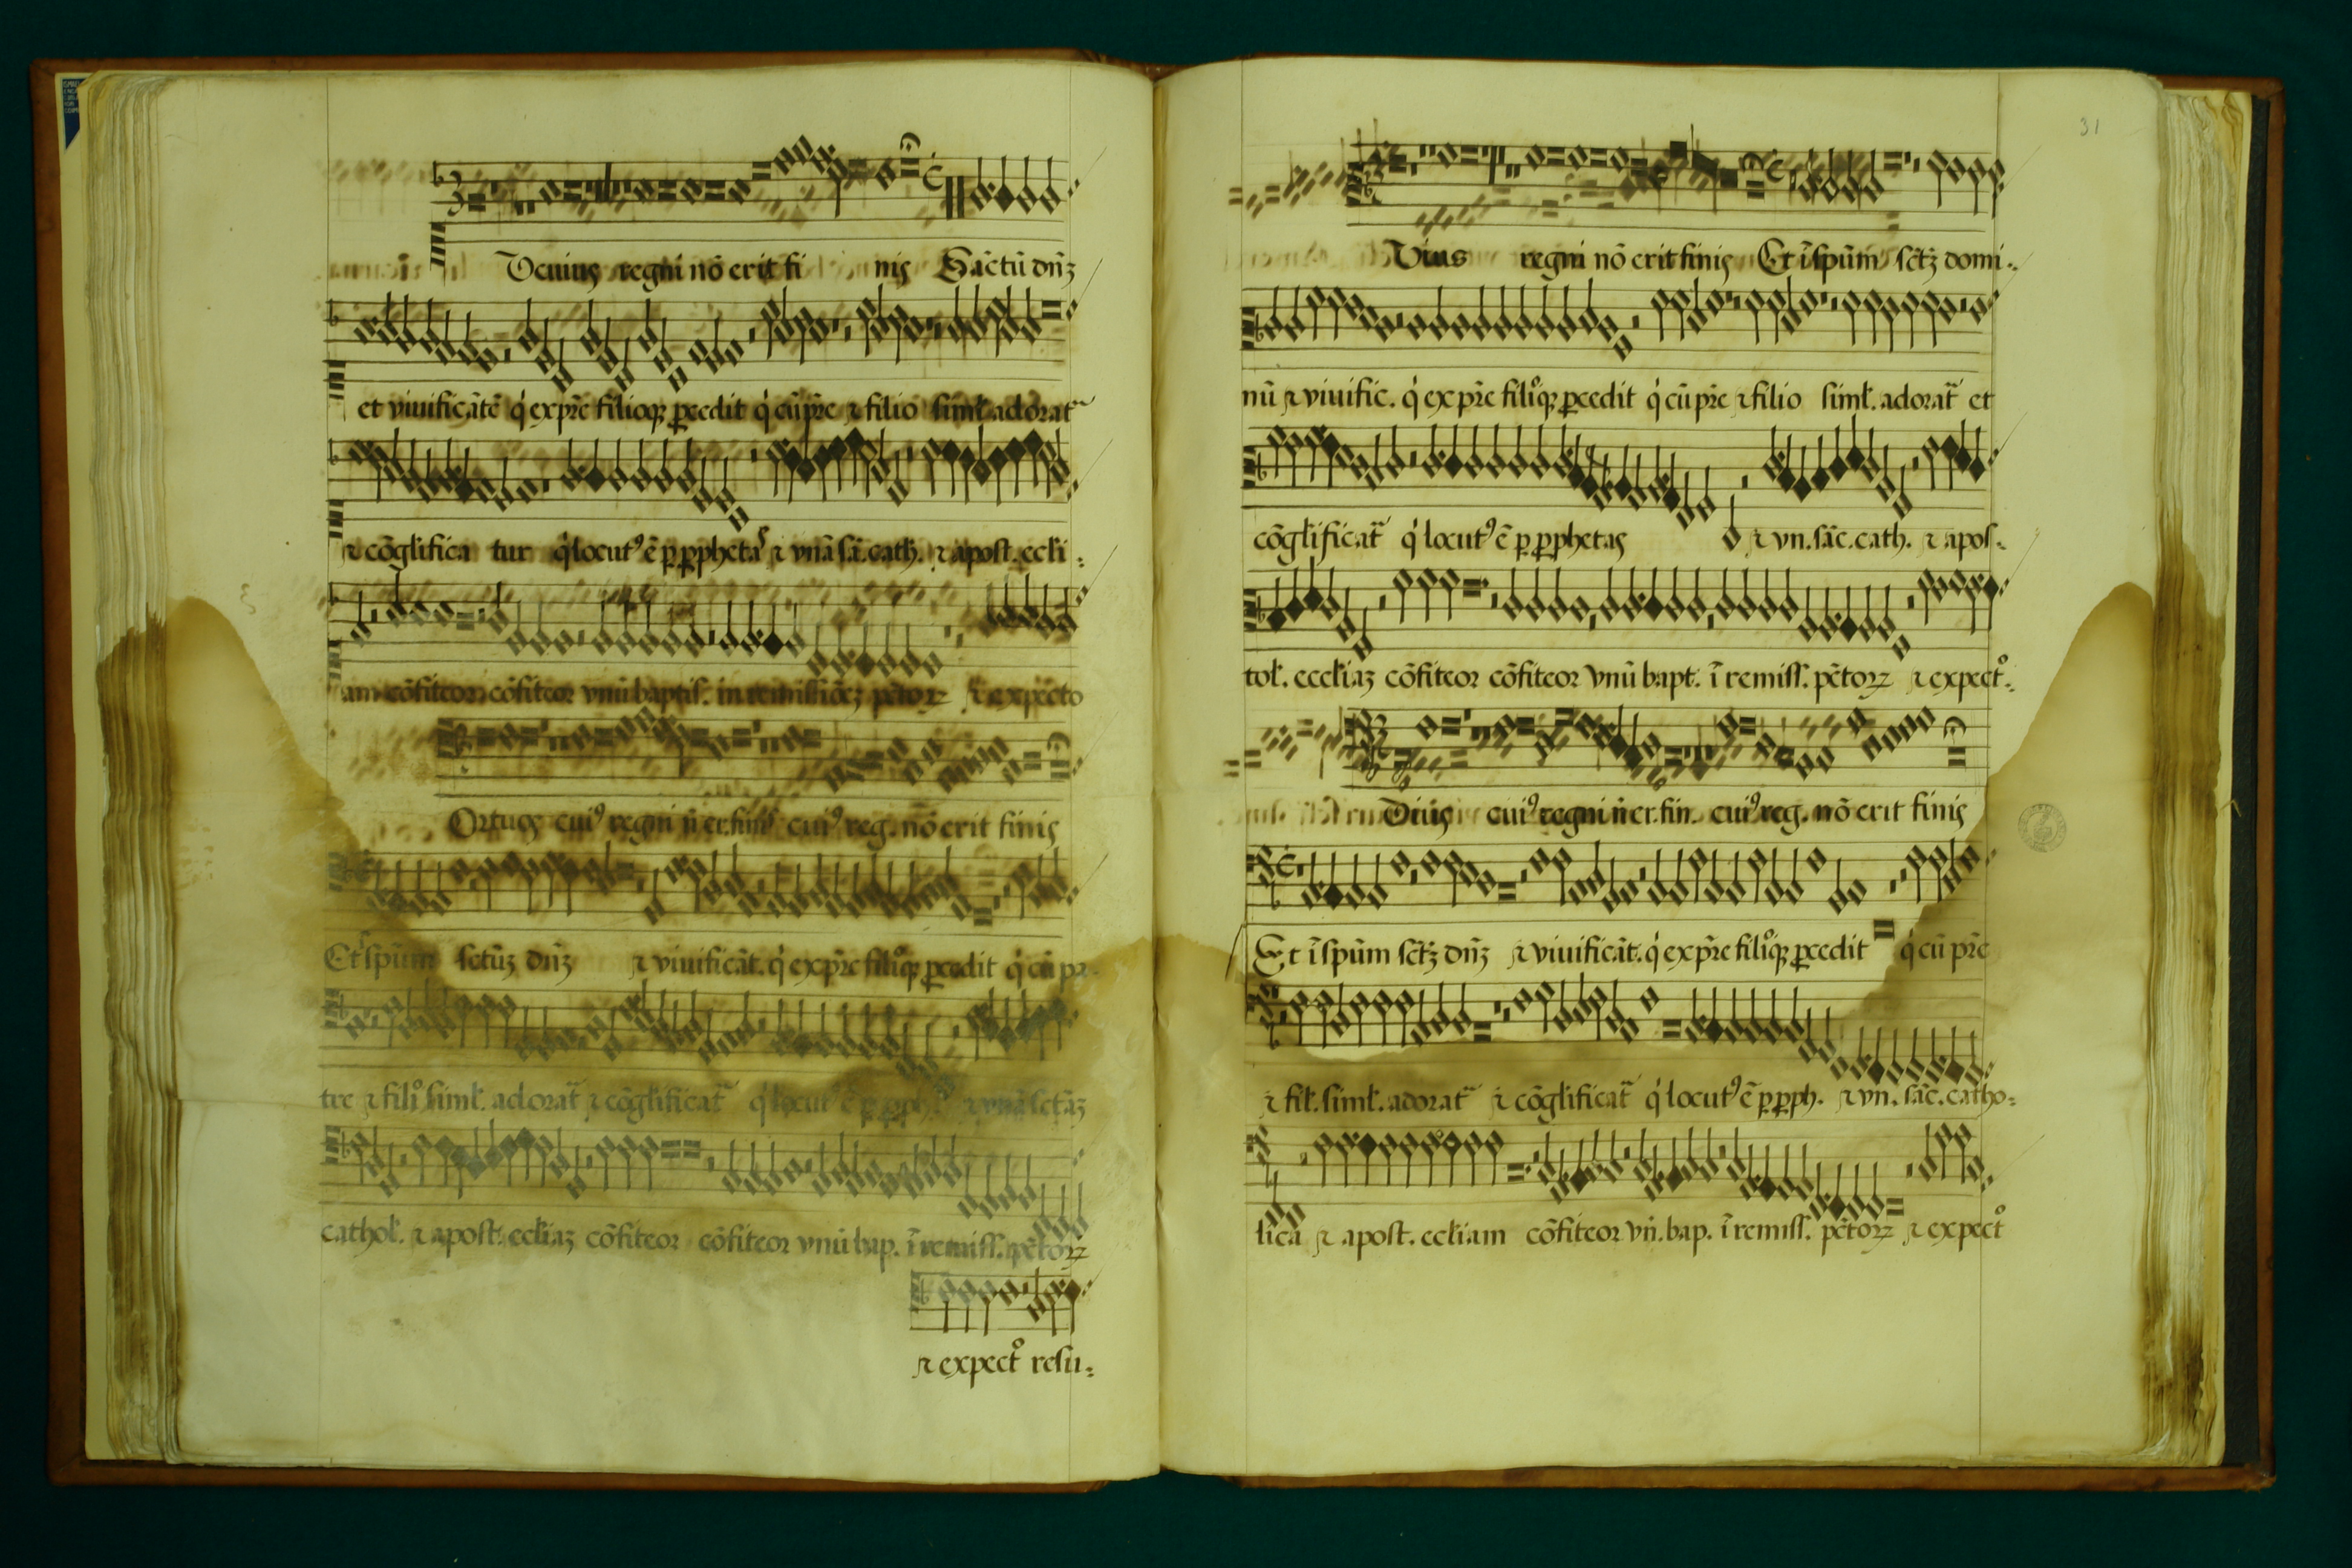 cuius regni nō erit fi nis Sāctū dn̄ꝫ
et viuificātē q̇ expr̄e filioqꝫ ꝓcedit q̇ cū pr̄e ⁊ filio siml̄. adorat̃
⁊ cōglifica tur q̇ locutꝰ ē ꝑ ꝓphetas ⁊ vnā sā. cath. ⁊ apost. eccli:
am cōfiteor cōfiteor vnū baptis. in remissiōeꝫ pc̄torꝫ ⁊ expecto
Ortuos cuiꝰ regni n̄ er. finis cuiꝰ reg. nō erit finis
Et īspūm sctūꝫ dn̄ꝫ ⁊ viuificāt. q̇ expr̄e filioqꝫ ꝓcedit q̇ cū pa-
tre ⁊ filio siml̄. adorat̃ ⁊ cōglificat̃ q̇ locutꝰ ē ꝑ ꝓph. ⁊ vnā sctāꝫ
cathol. ⁊ apost. eccliaꝫ cōfiteor cōfiteor vnū bap. ī remiss. pc̄torꝫ
⁊ expecto resu:
31
Vius regni nō erit finis Et īspūm sctꝫ domi:
nū ⁊ viuific. q̇ ex pr̄e filioqꝫ ꝓcedit q̇ cū pr̄e ⁊ filio siml̄. adorat̃ et
cōglificat̃ q̇ locutꝰ ē ꝑ ꝓphetas ⁊ vn. sāc. cath. ⁊ apos:
tol. eccliaꝫ cōfiteor cōfiteor vnū bapt. ī remiss. pc̄torꝫ ⁊ expecto:
cuiꝰ regni n̄ er. fin. cuiꝰ reg. nō erit finis
Et īspūm sctꝫ dn̄ꝫ ⁊ viuificāt. q̇ expr̄e filioqꝫ ꝓcedit q̇ cū pr̄e
⁊ fil. siml̄. adorat̃ ⁊ cōglificat̃ q̇ locutꝰ ē ꝑ ꝓph. ⁊ vn. sāc. catho:
lica ⁊ apost. eccliam cōfiteor vn̄. bap. ī remiss. pc̄torꝫ ⁊ expecto